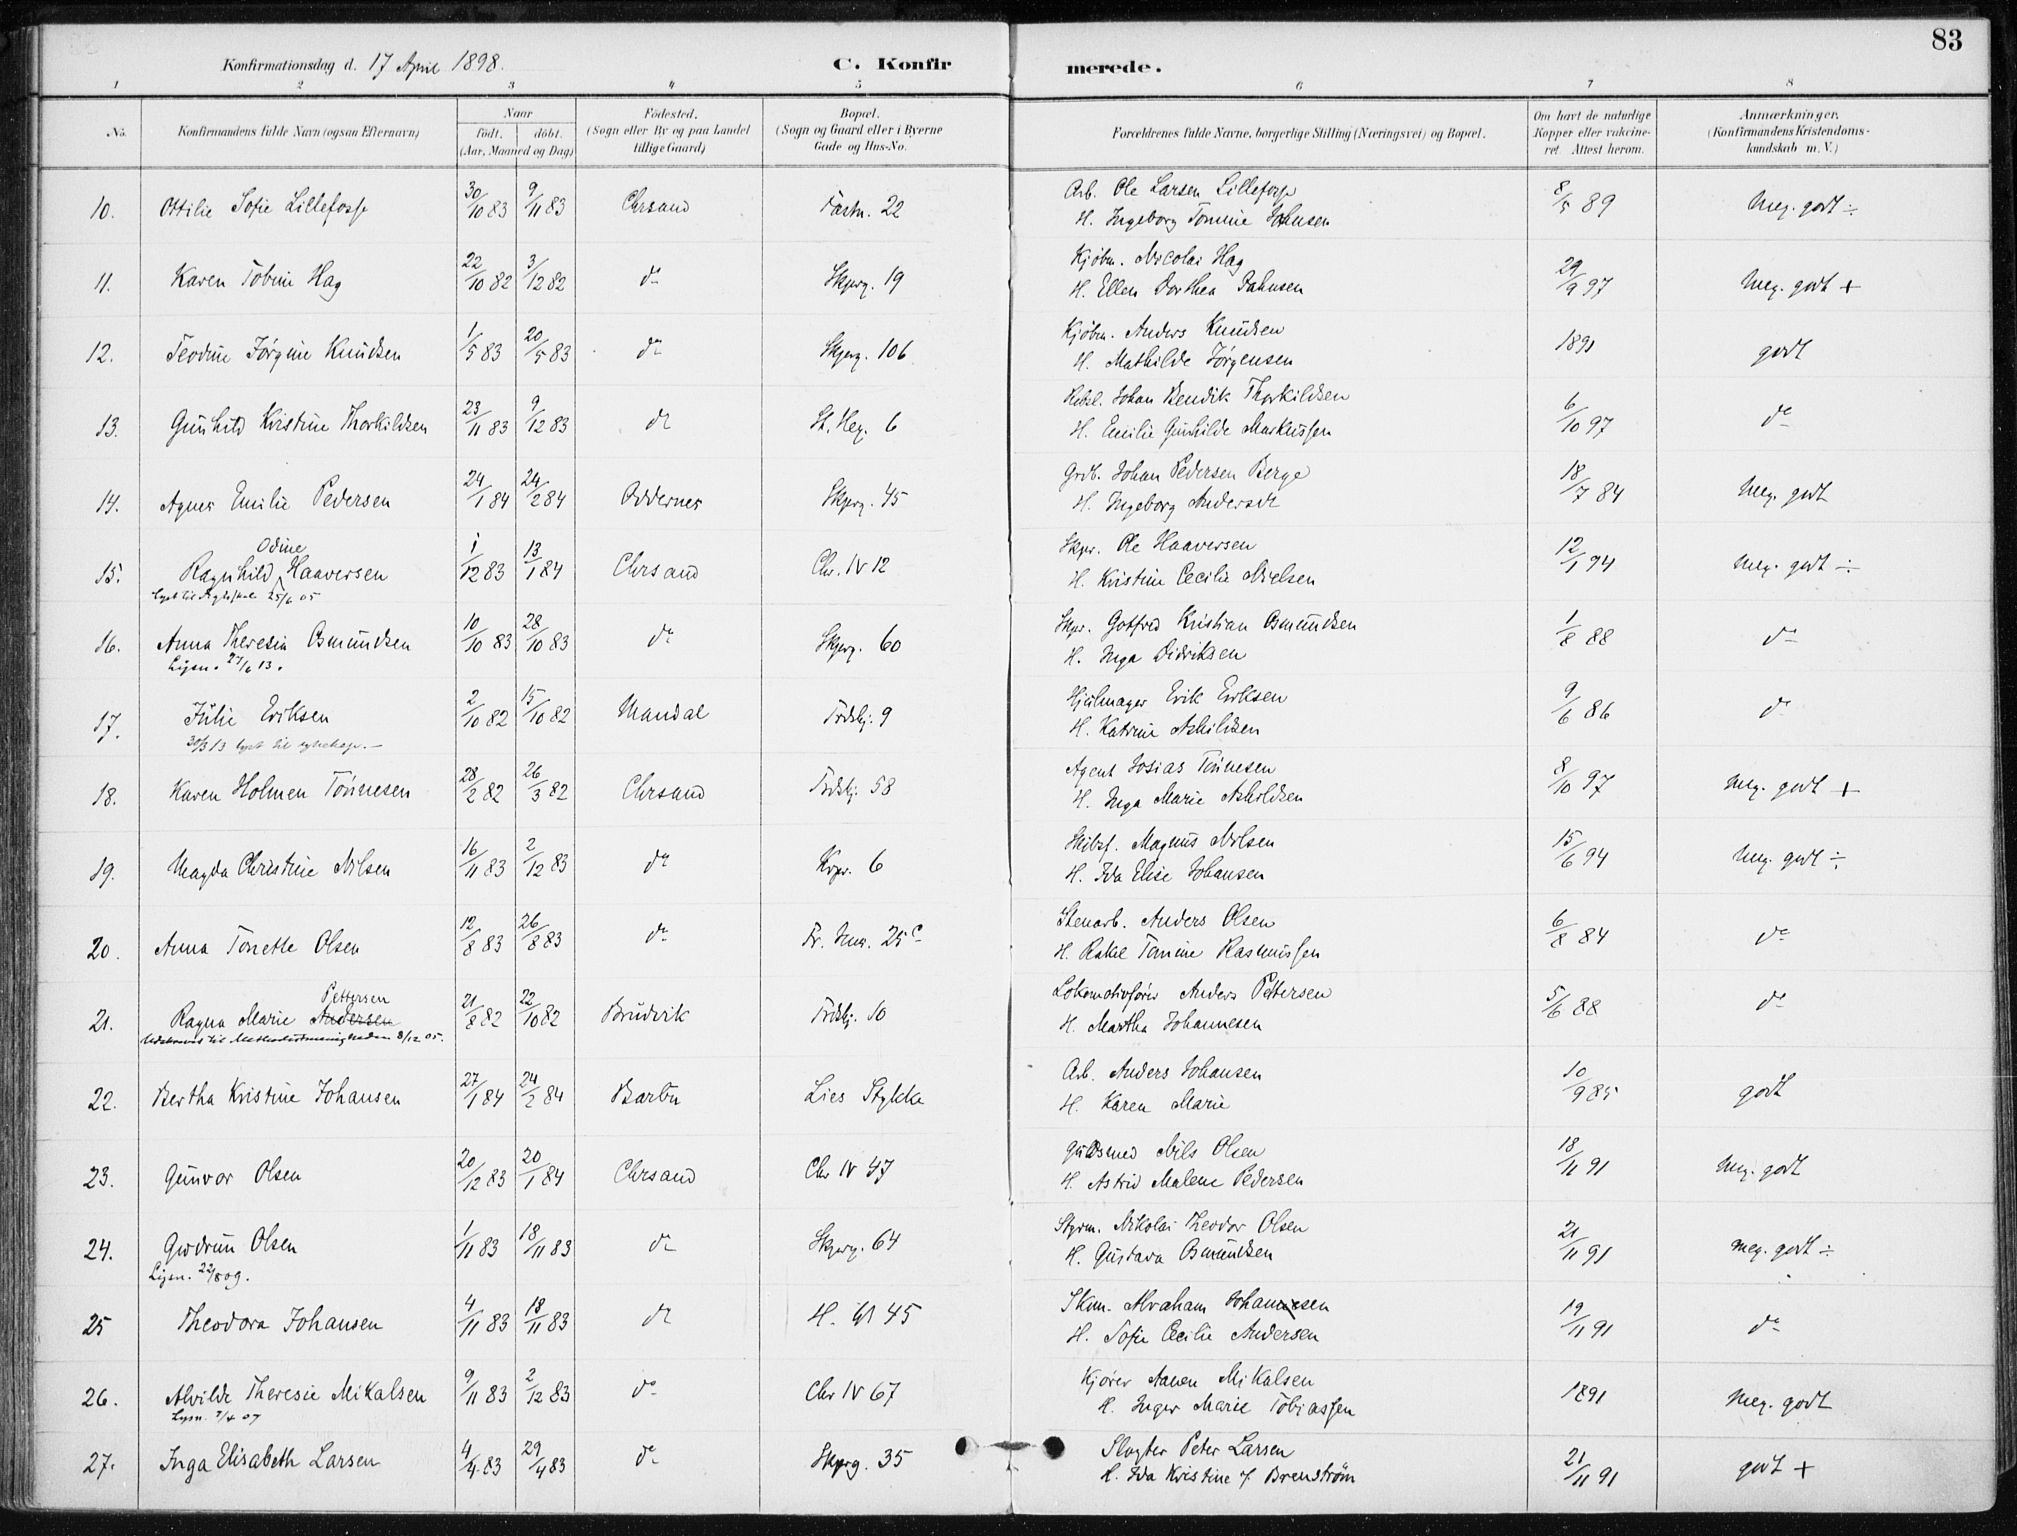 83
Konfirmationsdag d. 17 April 1898. C. Konfirmerede.
1 2 3 4 5 6 7 8
No. Konfirmandens fulde Navn (ogsaa Efternavn) Naar født. døbt. (Aar, Maaned og Dag) Fødested. (Sogn eller By og paa Landet tillige Gaard) Bopæl. (Sogn og Gaard eller i Byerne Gade og Hus-No. Forældrenes fulde Navne, borgerlige Stilling (Næringsvei) og Bopæl. Om havt de naturlige Kopper eller vaccineret. Attest herom. Anmærkninger. (Konfirmandens Kristendomskundskab m. V.)
10. Ottilie Sofie Lillefosse 30/10 83 9/11 83 Chrsand Fæstn. 22 Arb. Ole Larsen Lillefosse 8/5 89 Meg. godt ÷
H. Ingeborg Tomine Johnsen
11. Karen Tobine Hag 22/10 82 3/12 82 do Skjerg. 19 Kjøbm. Nicolai Hag 29/9 97 Meg. godt +
H. Ellen Dorthea Jahnsen
12. Teodine Jørgine Knudsen 1/5 83 20/5 83 do Skjerg. 106 Kjøbm. Anders Knudsen 1891 godt
H. Mathilde Jørgensen
13. Gunhild Kristine Thorkildsen 23/11 83 9/12 83 do St. Heg. 6 Johan Bendik Thorkildsen 6/10 97 do
H. Emilie Gunhilde Markussen
14. Agnes Emilie Pedersen 24/1 84 24/2 84 Oddernes Skjerg. 45 Grdb. Johan Pedersen Berge 18/7 84 Meg. godt
H. Ingeborg Andersdt
Odine
15. Ragnhild Haaversen 1/12 83 13/1 84 Chrsand Chr. IV 12 Skpr. Ole Haaversen 12/1 94 Meg. godt ÷
25/6 05 H. Kristine Cecilie Nielsen
16. Anna Theresia Osmundsen 10/10 83 28/10 83 do Skjerg. 60 Skpr. Gotfred Kristian Osmundsen 1/8 88 do
Lysn. 27/6 13. H. Inga Didriksen
17. Julie Eriksen 2/10 82 15/10 82 Mandal Frdskj. 9 Hjulmager Erik Eriksen 9/6 86 do
30/3 13 lyst til H. Katrine Askildsen
18. Karen Holmen Tønnesen 28/2 82 26/3 82 Chrsand Frdskj. 58 Agent Josias Tønnesen 8/10 97 Meg. godt +
H. Inga Marie Askildsen
19. Magda Christine Nilsen 16/11 83 2/12 83 do Krpr. 6 Skibsf. Magnus Nilsen 15/6 94 Meg. godt ÷
H. Ida Elise Johansen
20. Anna Tonette Olsen 12/8 83 26/8 83 do 25 c Stenarb. Anders Olsen 6/8 84 do
H. Rakel Tomine Rasmussen
Pettersen
21. Ragna Marie Andersen 21/8 82 22/10 82 Brudvik Frdskj. 10 Lokomotivfører Anders Pettersen 5/6 88 do
Udskrevet til Methodistmenigheden 8/12 05. H. Martha Johannesen
22. Bertha Kristine Johansen 27/1 84 24/2 84 Barbu Lies Stykke Arb. Anders Johansen 10/9 85 godt
H. Karen Marie
23. Gunvor Olsen 20/12 83 20/1 84 Chrsand Chr IV 47 Guldsmed Nils Olsen 18/11 91 Meg. godt
H. Astrid Malene Pedersen
24. Gudrun Olsen 1/11 83 18/11 83 do Skjerg. 64 Styrm. Nikolai Theodor Olsen 21/11 91 meg. godt ÷
Lysn. 22/8 09. H. Gustava Osmundsen
25 Theodora Johansen 4/11 83 18/11 83 do H. W 45 Skm. Abraham Johannesen 19/11 91 do
H. Sofie Cecilie Andersen
26. Alvilde Theresie Mikalsen 9/11 83 2/12 83 do Chr IV 67 Kjører Aanen Mikalsen 1891 Meg. godt
Lysn. 7/4 07 H. Inger Marie Tobiassen
27. Inga Elisabeth Larsen 4/4 83 29/4 83 do Skjerg. 35 Slagter Peter Larsen 21/11 91 godt +
H. Ida Kristine f. Brenstrøm